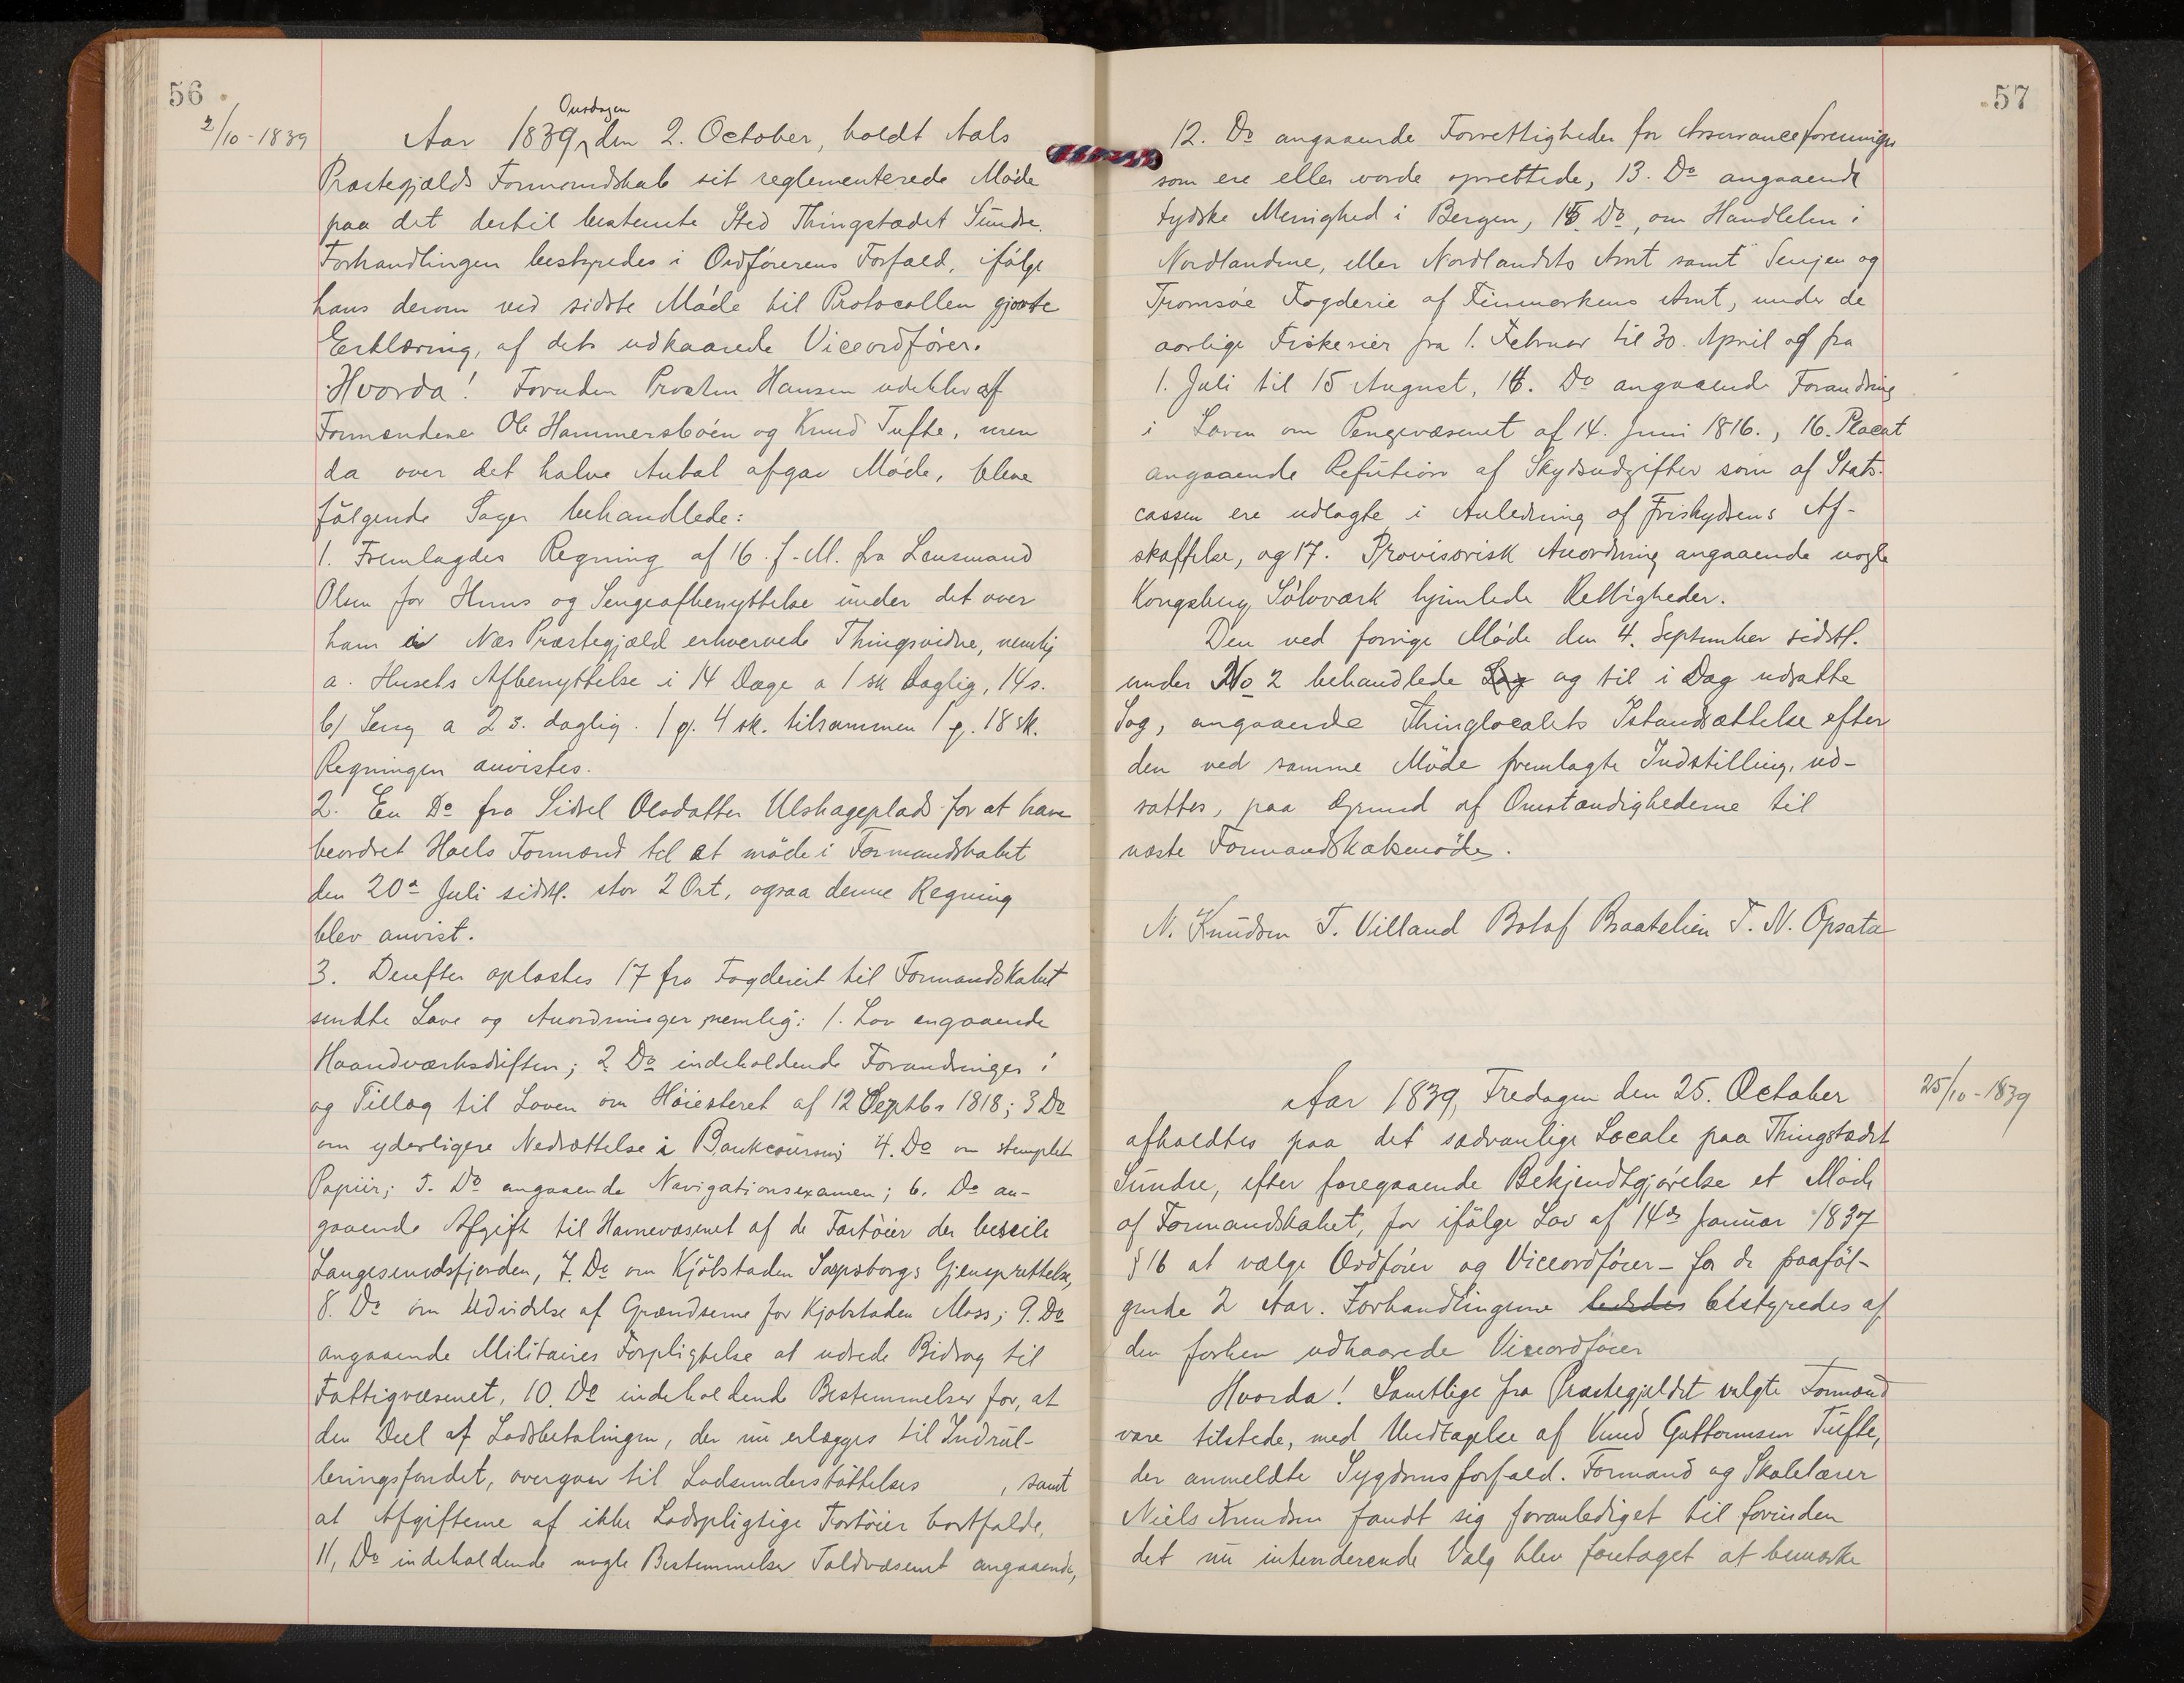 56
2/10-1839
Onsdagen
Aar 1839, den 2. October, holdt Aals
Præstegjælds Formandskab sit reglementerede Møde
paa det dertil bestemte Sted Thingstædet Sundre.
Forhandlingen bestyredes i Ordførerens Forfald, ifølge
hans derom ved sidste Møde til Protocollen gjorte
Erklæring, af dets udkaarede Viceordfører.
Hvorda! Foruden Provsten Hansen udeblev af
Formændene Ole Hammersbøen og Knud Tufte, men
da over det halve Antal afgav Møde, bleve
følgende Sager behandlede:
1. Fremlagdes Regning af 16. f. M. fra Lensmand
Olsen for Huus og Sengeafbenyttelse under det over
ham i Næs Præstegjæld erhvervede Thingsvidne, nemlig
a. Husets Afbenyttelse i 14 Dage a 1 sk daglig, 14 s.
b) Seng a 2 s. daglig. 1 ort. 4 sk. tilsammen 1 ort. 18 sk.
Regningen anvistes.
2. En Do fra Sidsel Olsdatter Ulshageplads for at have
beordret Haels Formænd til at møde i Formandskabet
den 20de Juli sidstl. stor 2 Ort, ogsaa denne Regning
blev anvist.
3. Derefter oplæstes 17 fra Fogderiet til Formandskabet
sendte Love og Anordninger, nemlig: 1. Lov angaaende
Haandværksdriften; 2 Do indeholdende Forandringer i
og Tillæg til Loven om Høiesteret af 12 Septbr 1818; 3 Do
om yderligere Nedsættelse i Bankcoursen; 4. Do om stemplet
Papiir; 5. Do angaaende Navigationsexamen; 6. Do an-
gaaende Afgift til Havnevæsenet af de Fartøier der beseile
Langesundsfjorden, 7. Do om Kjøbstaden Sarpsborgs Gjenoprettelse,
8. Do om Udvidelse af Grændserne for Kjøbstaden Moss; 9. Do
angaaende Militaires Forpligtelse at udrede Bidrag til
Fattigvæsenet, 10. Do indeholdende Bestemmelser for, at
den Deel af Lodsbetalingen, der nu erlægges til Indrul-
leringsfondet, overgaar til Lodsunderstøttelses , samt
at Afgifterne af ikke Lodspligtige Fartøier bortfalde,
11, Do indeholdende nogle Bestemmelser Toldvæsenet angaaende,
57
12. Do angaaende Forrettigheder for Assuranceforeninger
som ere eller vorde oprettede, 13. Do angaaende
tydske Menighed i Bergen, 15. Do, om Handelen i
Nordlandene, eller Nordlandets Amt samt Senjen og
Tromsøe Fogderie af Finmarkens Amt, under de
aarlige Fiskerier fra 1. Februar til 30. April og fra
1. Juli til 15 August, 16. Do angaaende Forandring
i Loven om Pengevæsenet af 14. Juni 1816., 16. Placat
angaaende Refution af Skydsudgifter som af Stats-
cassen ere udlagte i Anledning af Friskydsens Af-
skaffelse, og 17. Provisorisk Anordning angaaende nogle
Kongsberg Sølvværk hjemlede Rettigheder.
Den ved forrige Møde den 4. September sidstl.
under No 2 behandlede Sag og til i Dag udsatte
Sag, angaaende Thinglocalets Istandsættelse efter
den ved samme Møde fremlagte Indstilling, ud-
sattes, paa Grund af Omstændighederne til
næste Formandskabsmøde.
N. Knudsen T. Villand Botof Braatelien T. N. Opsata
25/10-1839
Aar 1839, Fredagen den 25. October
afholdtes paa det sædvanlige Locale paa Thingstædet
Sundre, efter foregaaende Bekjendtgjørelse et Møde
af Formandskabet, for ifølge Lov af 14de Januar 1837
§ 16 at vælge Ordfører og Viceordfører – for de paaføl-
gende 2 Aar. Forhandlingerne lededes bestyredes af
den forhen udkaarede Viceordfører
Hvorda! Samtlige fra Præstegjældet valgte Formænd
vare tilstede, med Undtagelse af Knud Guttormsen Tufte,
der anmeldte Sygdomsforfald. Formand og Skolelærer
Niels Knudsen fandt sig foranlediget til forinden
det nu intenderende Valg blev foretaget at bemærke